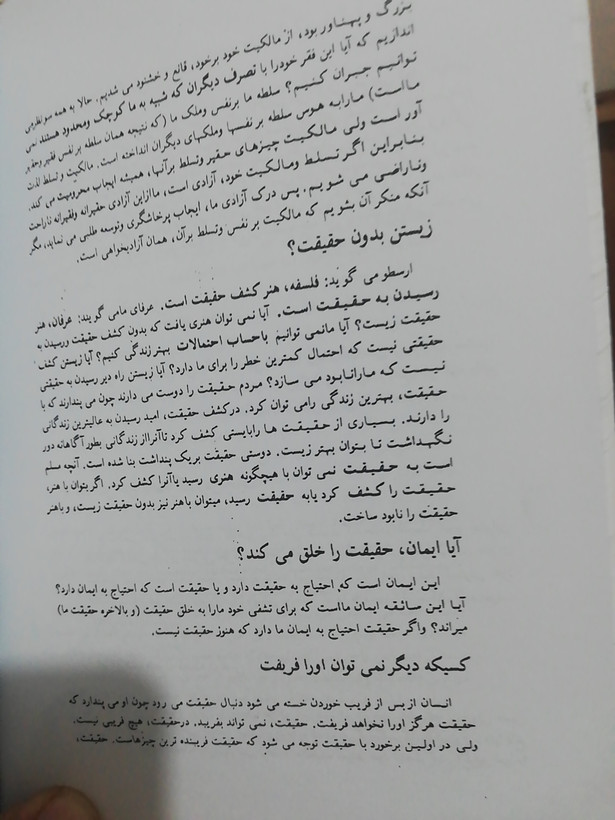 بزرگ و پهناور بود، از مالکیت خود برخود، قانع و خشنود می شدیم. حالا به همه سو نظر می
اندازیم که آیا این فقر خودرا با تصرف دیگران که شبیه به ما کوچک ومحدود هستند نمی
توانیم جبران کنیم؟ سلطه ما برنفس وملک ما (که نتیجه همان سلطه برنفس فقیر وحقیر
مااست) مارابه هوس سلطه بر نفسها وملکهای دیگران انداخته است. مالکیت و تسلط لذت
آور است ولی مالکیت چیزهای حقیر وتسلط برآنها، همیشه ایجاب محرومیت می کند.
بنابراین اگر تسلط ومالکیت خود، آزادی است، ماازاین آزادی حقیرانه وفقیرانه ناراحت
وناراضی می شویم. پس درک آزادی ما، ایجاب پرخاشگری وتوسعه طلبی می نماید، مگر
آنکه منکر آن بشویم که مالکیت بر نفس وتسلط برآن، همان آزادیخواهی است.
زیستن بدون حقیقت؟
ارسطو می گوید: فلسفه، هنر کشف حقیقت است. عرفای مامی گویند: عرفان، هنر
رسیدن به حقیقت است. آیا نمی توان هنری یافت که بدون کشف حقیقت ورسیدن به
حقیقت زیست؟ آیا مانمی توانیم باحساب احتمالات بهتر زندگی کنیم؟ آیا زیستن کشف
حقیقتی نیست که احتمال کمترین خطر را برای ما دارد؟ آیا زیستن راه دیر رسیدن به حقیقتی
نیست که مارانابود می سازد؟ مردم حقیقت را دوست می دارند چون می پندارند که با
حقیقت، بهترین زندگی رامی توان کرد. درکشف حقیقت، امید رسیدن به عالیترین زندگانی
را دارند. بسیاری از حقیقت ها رابایستی کشف کرد تاآنرااز زندگانی بطور آگاهانه دور
نگهداشت تا بتوان بهتر زیست. دوستی حقیقت بریک پنداشت بنا شده است. آنچه مسلم
است به حقیقت نمی توان با هیچگونه هنری رسید یاآنرا کشف کرد. اگر بتوان با هنر،
حقیقت را کشف کرد یابه حقیقت رسید، میتوان باهنر نیز بدون حقیقت زیست، و باهنر
حقیقت را نابود ساخت.
آیا ایمان، حقیقت را خلق می کند؟
این ایمان است که احتیاج به حقیقت دارد و یا حقیقت است که احتیاج به ایمان دارد؟
آیا این سائقه ایمان مااست که برای تشفی خود مارا به خلق حقیقت (و بالاخره حقیقت ما)
میراند؟ واگر حقیقت احتیاج به ایمان ما دارد که هنوز حقیقت نیست.
کسیکه دیگر نمی توان اورا فریفت
انسان از بس از فریب خوردن خسته می شود دنبال حقیقت می رود چون او می پندارد که
حقیقت هرگز اورا نخواهد فریفت. حقیقت، نمی تواند بفریبد. درحقیقت، هیچ فریبی نیست.
ولی در اولین برخورد با حقیقت توجه می شود که حقیقت فریبنده ترین چیزهاست. حقیقت،